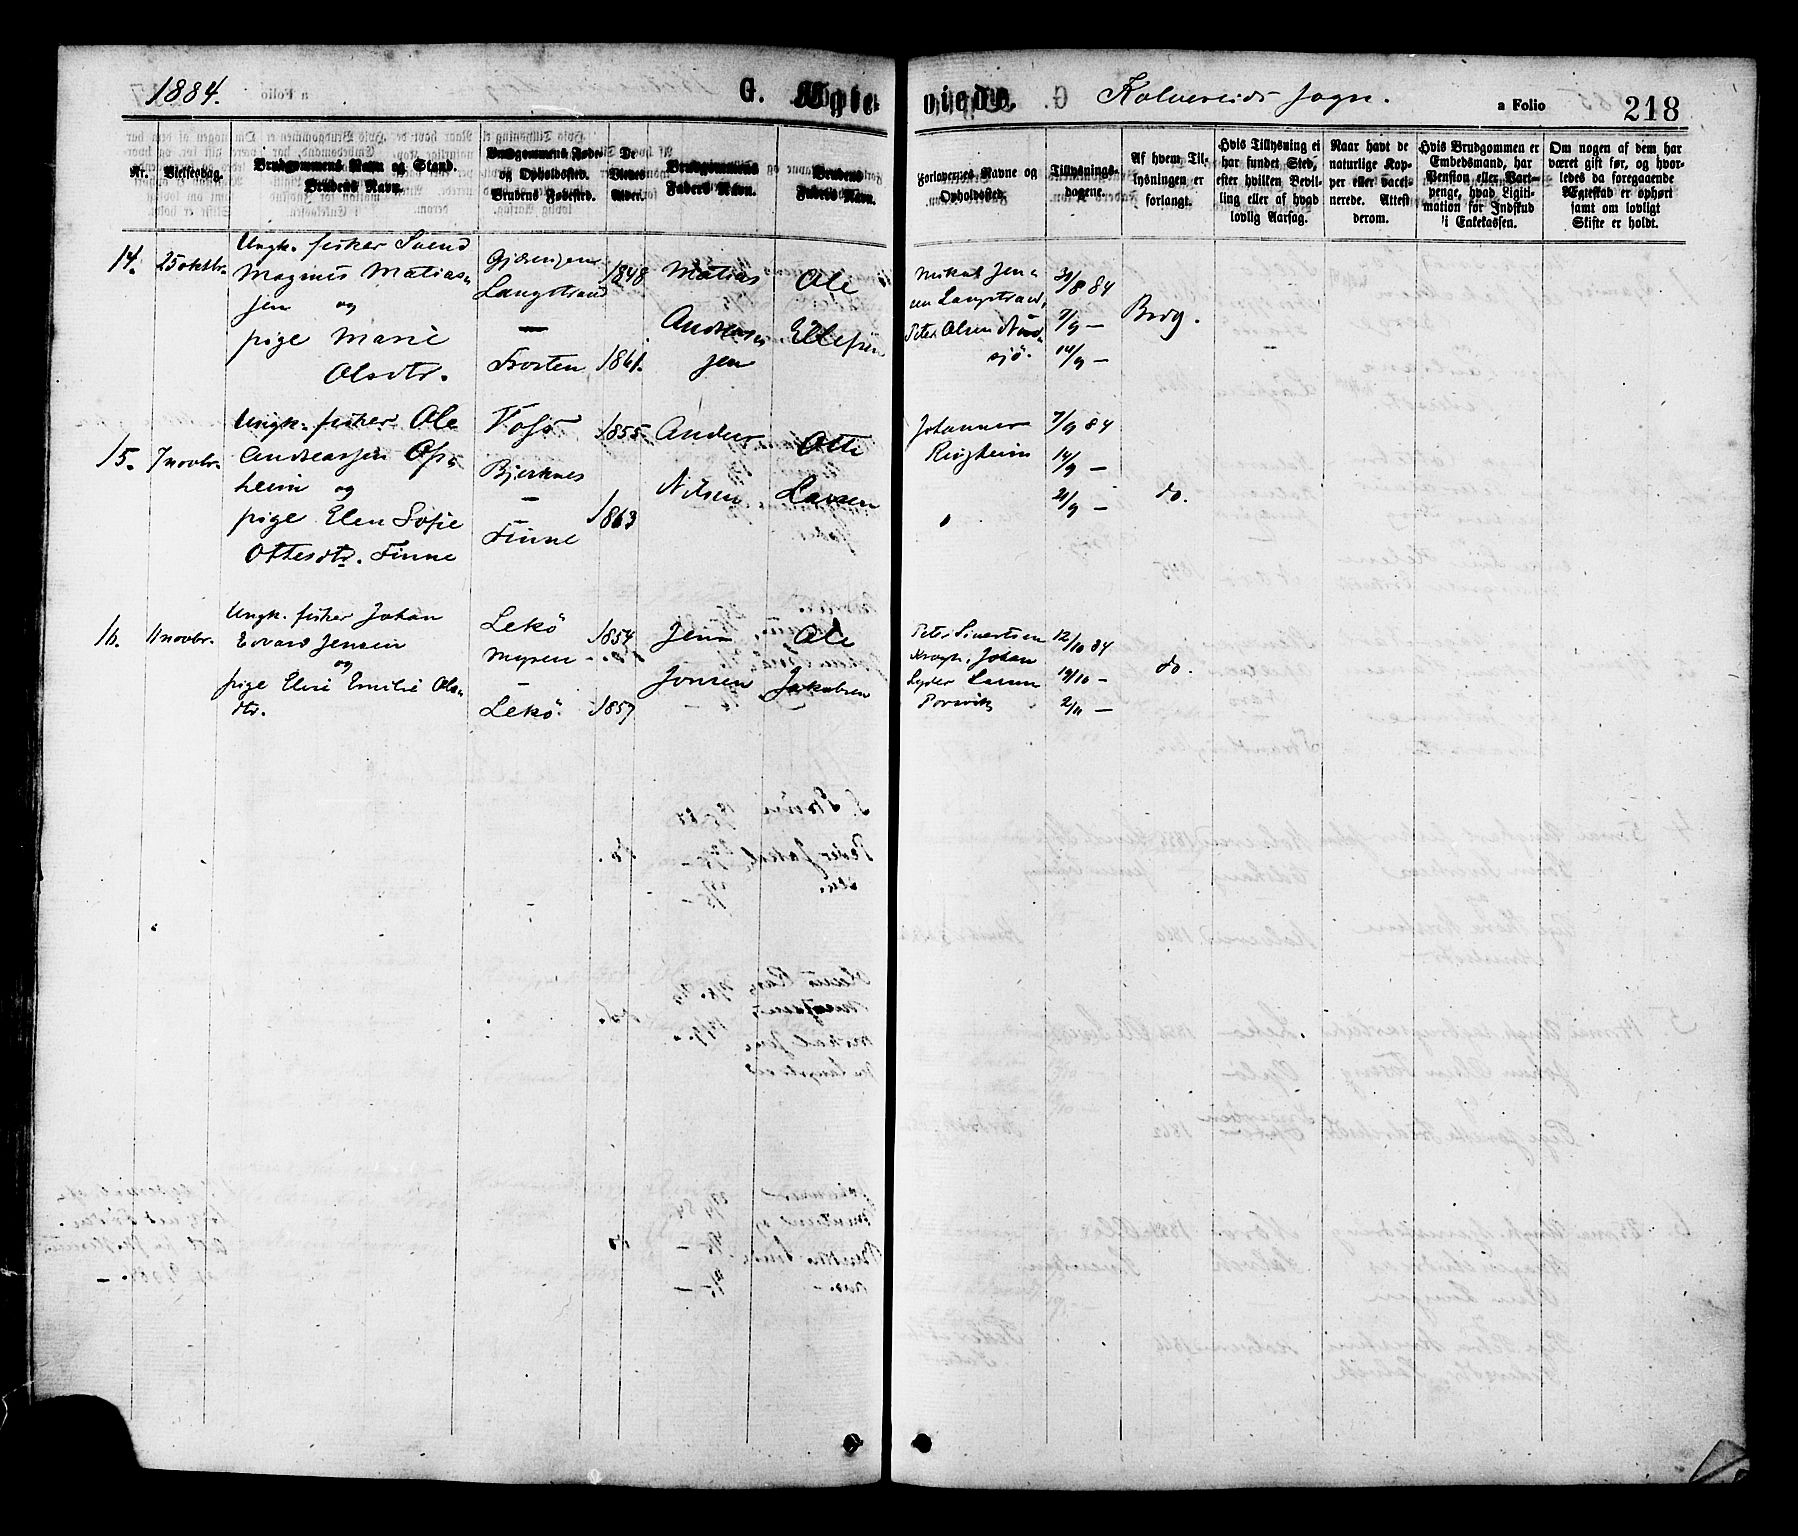 1884.
G. Ægte
viede.
Kolvereids sogn.
a Folio
218
Nr.
Vielsesdag.
Brudgommens Navn og Stand.
Brudens Navn.
Brudgommens Føde-
og Opholdssted.
Brudens Fødested.
De
Viedes
Alder.
Brudgommens
Faders Navn.
Brudens
Faders Navn.
Forlovernes Navne og
Opholdssted.
Tillysnings-
dagene.
Af hvem Til-
lysningen er
forlangt.
Hvis Tillysning ei
har fundet Sted,
efter hvilken Bevil-
ling eller af hvad
lovlig Aarsag.
Naar havt de
naturlige Kop-
per eller vacci-
nerede. Attest
derom.
Hvis Brudgommen er
Embedsmand, har
Pension eller Vart-
penge, hvad Ligiti-
mation for Indskud
i Enkekassen.
Om nogen af dem har
været gift før, og hvor-
ledes da foregaaende
Ægteskab er ophørt
samt om lovligt
Skifte er holdt.
14.
25 oktbr.
Ungk. fisker Svend
Magnus Matias-
sen og
pige Marie
Olsdtr.
Langstrand
—
Frosten
1848
1861.
Matias
Andreas-
sen
Ole
Ellefsen
Mikal Jen-
sen Langstrand,
Peter Olsen
sjö.
31/8 84
7/9 —
14/9 —
Brdg.
15.
7 novbr.
Ungk. fisker Ole
Andreassen Ops-
heim og
pige Elen Sofie
Ottesdtr. Finne
Bjerknes
—
Finne
1855
1863
Anders
Nilsen
Otte
Larsen
Johannes
Ringheim
7/9 84
14/9 —
21/9 —
do.
16.
11 novbr.
Ungk. fisker Johan
Edvard Jensen
og
pige Elvie Emilie Ols-
dtr.
Lekö
Myren
—
Lekö.
1854
1857
Jens
Jonsen
Ole
Jakobsen
Peter Sivertsen
Johan
Lyder Larsen
Porsvik
12/10 84
19/10 —
2/11 —
do.